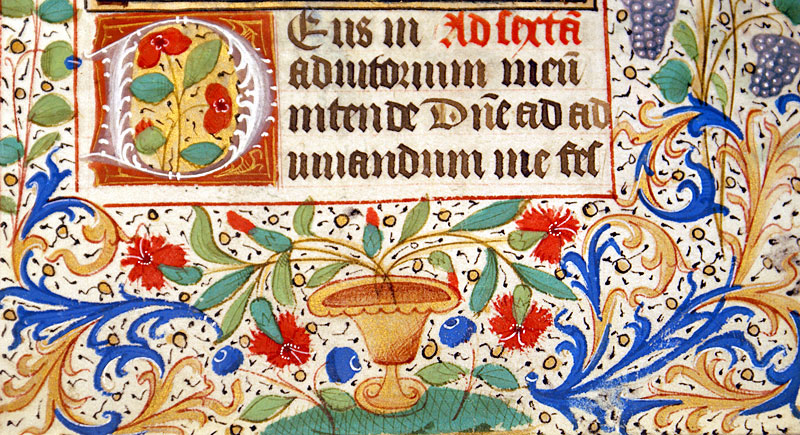 Deus in Ad sextā
adiutorium meū
intende Dn̄e ad ad
iuuandum me fes